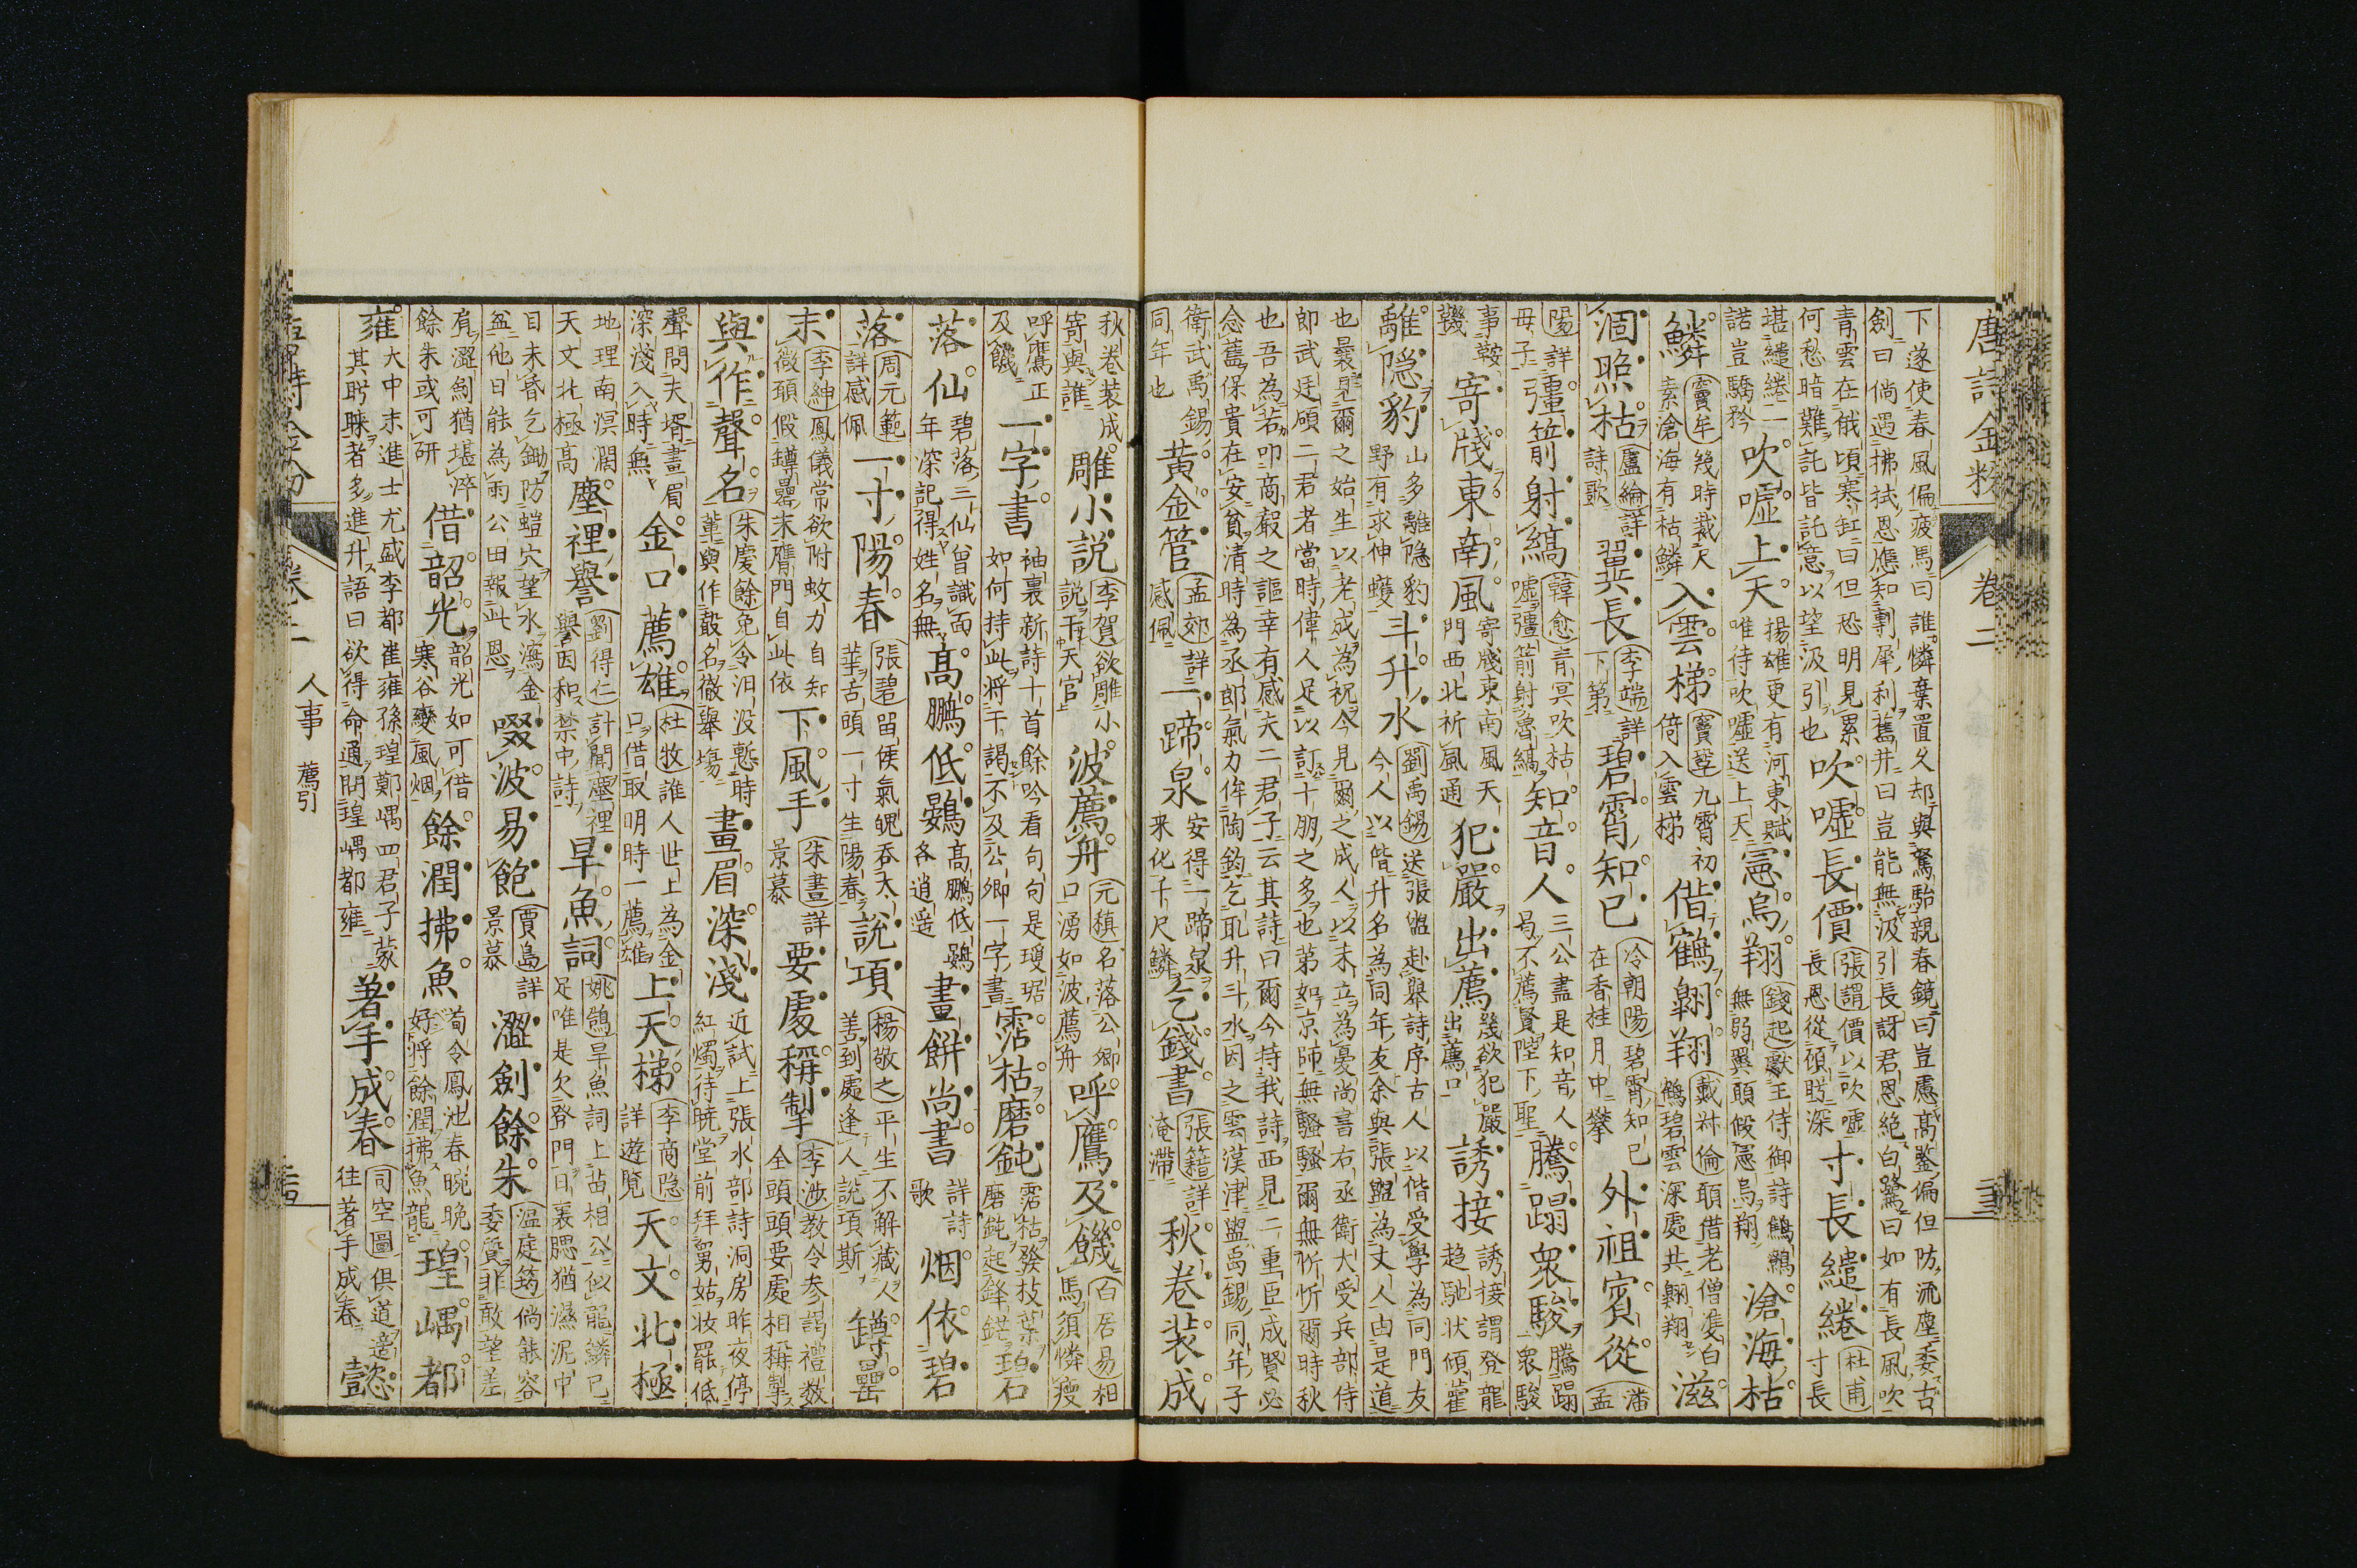 唐詩金粉 卷二
下遂使春風偏疲馬曰誰憐棄置久却與駑駘親春鏡曰豈慮高鑒偏但防流塵委古
劍曰倘遇拂拭恩應知剸犀利舊井曰豈能無汲引長訝君恩絕白鷺曰如有長風吹
青雲在俄頃寒缸曰但恐明見累
何愁暗難託皆託意以望汲引也
吹噓長價
張謂價以吹噓
長恩從顧眄深
寸長繾綣
杜甫寸長
堪繾綣一
諾豈驕矜
吹噓上天
揚雄更有河東賦
唯待吹噓送上天
憲烏翔
錢起獻王侍御詩鷦鷯
無弱翼願假憲烏翔
滄海枯
鱗
竇牟幾時裁尺
素滄海有枯鱗
入雲梯
竇鞏九霄初
倚入雲梯
借鶴翺翔
戴叔倫願借老僧雙白
鶴碧雲深處共翺翔
滋
涸照枯
盧綸詳
詩歌
翼長
李端詳
下第
碧霄知已
冷朝陽碧霄知已
在香桂月中攀
外祖賓從
潘
孟
陽詳
毋子
彊箭射縞
韓愈青冥吹枯
噓彊箭射魯縞
知音人
三公盡是知音人
曷不薦賢陛下聖
騰蹋衆駿
騰蹋
衆駿
事鞍
鞿
寄牋東南風
寄牋東南風天
門西北祈風通
犯嚴出薦
幾欲犯嚴
出薦口
誘接
誘接謂登龍
趋馳狀傾藿
離隠豹
山多離隠豹
野有求伸蠖
斗升水
劉禹錫送張盥赴舉詩序古人以偕受學為同門友
今人以偕升名為同年友余與張盥為丈人由是道
也曩見爾之始生以老成為祝今見爾之成人以未立為憂尚書右丞衛大受兵部侍
郎武廷碩二君者當時偉人足以訂十朋之多也第如京師無騷騷爾無忻忻爾時秋
也吾為若叩商聲之謳幸有感夫二君子云其詩曰爾今持我詩西見二重臣成賢必
念舊保貴在安貧清時為丞郎氣力侔陶鈞乞取升斗水因之雲漢津盥禹錫同年子
衛武禹錫
同年也
黄金管
孟郊詳
感佩
一蹄泉
安得一蹄泉
来化千尺鱗
乞錢書
張籍詳
淹滯
秋卷裝成
秋卷装成
寄與誰
雕小説
李賀欲雕小
説干天官
波薦舟
元稹名落公卿
口湧如波薦舟
呼鷹及饑
白居易相
馬須憐瘦
呼鷹正
及饑
一字書
袖裏新詩十首餘吟看句句是瓊琚
如何持此将干謁不及公卿一字書
霑枯磨鈍
霑枯發枝葉
磨鈍起鋒鋩
碧
落仙
碧落三仙曾識面
年深記得姓名無
高鵬低鷃
高鵬低鷃
各逍遥
畫餅尚書
詳詩
歌
烟依碧
落
周元範
詳感佩
一寸陽春
張碧留侯氣魄吞太
華舌頭一寸生陽春
説項
楊敬之平生不解藏人
善到處逢人説項斯
罇罍
末
李紳鳳儀常欲附蚊力自知
微願假罇罍末膺門自此依
下風手
朱晝詳
景慕
要處稱掣
李渉教令参謁禮数
全頭頭要處相稱掣
與作聲名
朱慶餘免令汨没慙時
輩與作聲名徹舉場
畫眉深淺
近試上張水部詩洞房昨夜停
紅燭待暁堂前拜舅姑妝罷低
聲問夫壻畫眉
深淺入時無
金口薦雄
杜牧誰人世上為金
口借取明時一薦雄
上天梯
李商隠
詳遊覧
天文北極
地理南溟濶
天文北極高
塵裡譽
劉得仁計聞塵裡
譽因和禁中詩
旱魚詞
姚鵠旱魚詞上苫相公似龍鱗已
足唯是欠登門日裏腮猶濕泥中
目未昏乞鋤防螘穴望水瀉金
盆他日能為雨公田報此恩
啜波易飽
賈島詳
景慕
澀劍餘朱
温庭筠倘能容
委質非敢望差
肩澀劍猶堪淬
餘朱或可研
借韶光
韶光如可借
寒谷變風烟
餘潤拂魚
荀令鳳池春晼晚
好将餘潤拂魚龍
瑝嵎都
雍
大中末進士尤盛李都崔雍孫瑝鄭嵎四君子蒙
其盻睞者多進升語曰欲得命通問瑝嵎都雍
著手成春
司空圖俱道適
往著手成春
懿
人事 薦引